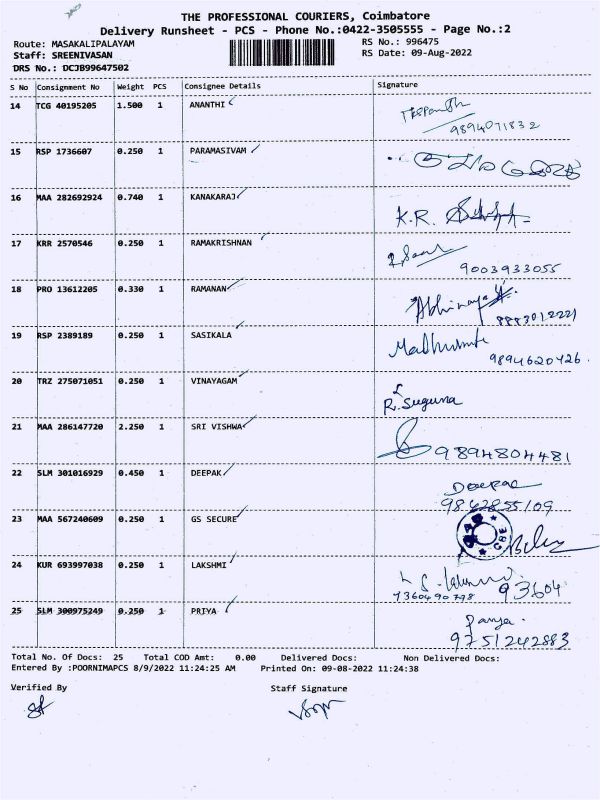 THE PROFESSIONAL COURIERS, Coimbatore
Delivery Runsheet - PCS - Phone No.:0422-3505555 - Page No.:2
Route: MASAKALIPALAYAM RS No.: 996475
Staff: SREENIVASAN RS Date: 09-Aug-2022
DRS No.: DCJB99647502
S No Consignment No Weight PCS Consignee Details Signature
14 TCG 40195205 1.500 1 ANANTHI
9894071832
15 RSP 1736607 0.250 1 PARAMASIVAM
16 MAA 282692924 0.740 1 KANAKARAJ K.R.
17 KRR 2570546 0.250 1 RAMAKRISHNAN
9003933055
18 PRO 13612205 0.330 1 RAMANAN Abhinaya
19 RSP 2389189 0.250 1 SASIKALA
9894620426.
20 TRZ 275071051 0.250 1 VINAYAGAM
R. Suguna
21 MAA 286147720 2.250 1 SRI VISHWA
9894804481
22 SLM 301016929 0.450 1 DEEPAK Deepak
9842855109
23 MAA 567240609 0.250 1 GS SECURE
CBE
24 KUR 693997038 0.250 1 LAKSHMI
7360490798 93604
25 SLM 300975249 0.250 1 PRIYA
9751242883
Total No. Of Docs: 25 Total COD Amt: 0.00 Delivered Docs: Non Delivered Docs:
Entered By :POORNIMAPCS 8/9/2022 11:24:25 AM Printed On: 09-08-2022 11:24:38
Verified By Staff Signature